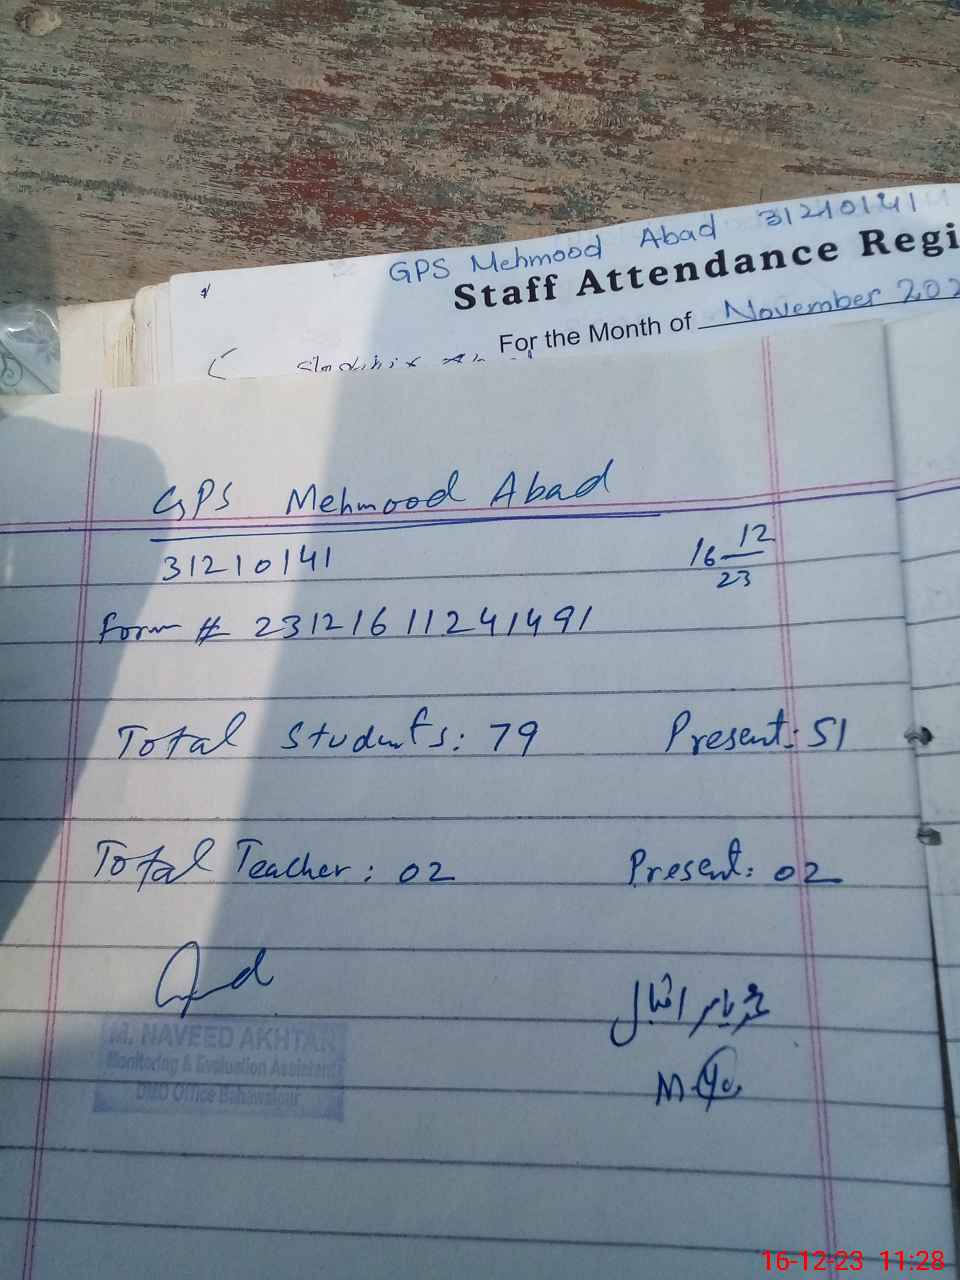 GPS Mehmood Abad 31210141
Staff Attendance Regi
For the Month of November 202
GPS Mehmood Abad
31210141
16 12
23
Form # 23121611241491
Total Students: 79 Present: 51
Total Teacher: 02 Present: 02
اقبال
M. NAVEED AKHTAR
Monitoring & Evaluation Assistant
DMO Office Bahawalpur
16-12-23 11:28